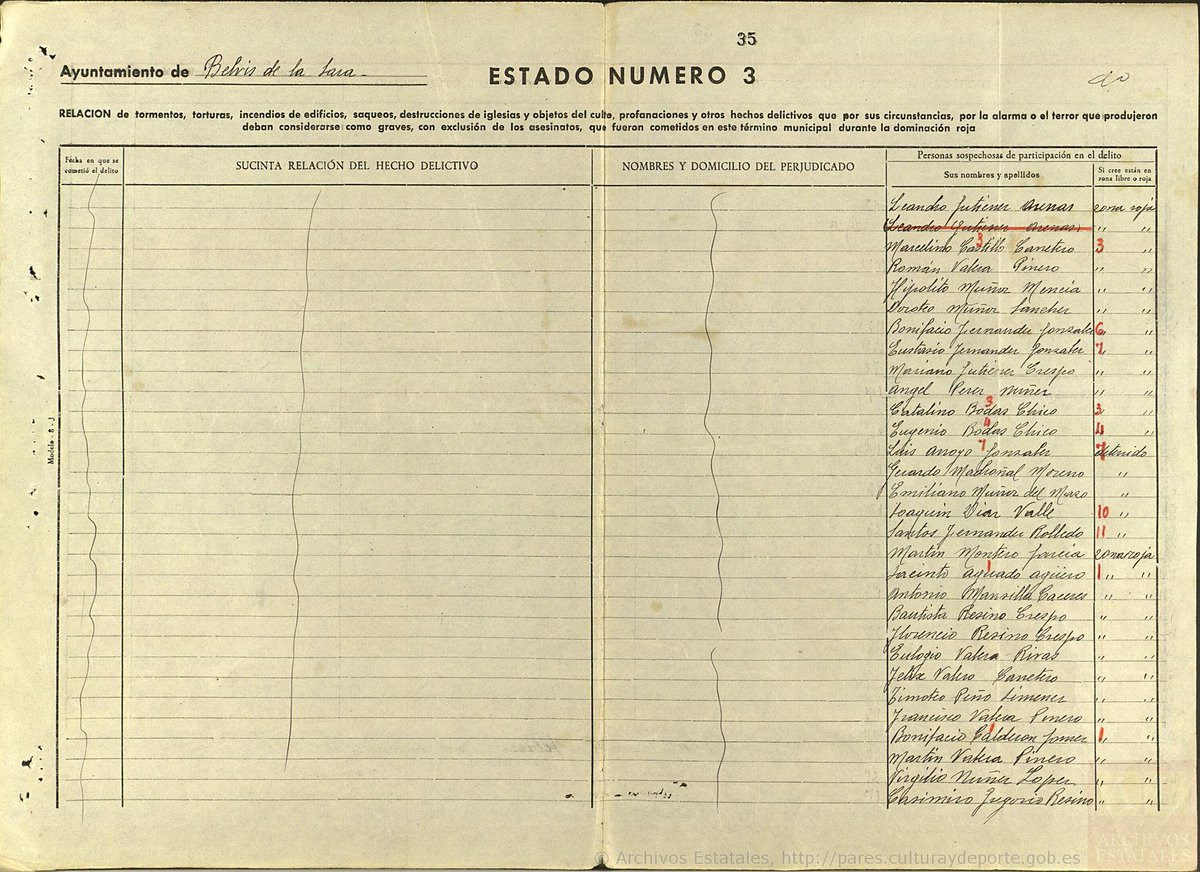 35
Ayuntamiento de Belvis de la Jara
ESTADO NUMERO 3
RELACION de tormentos, torturas, incendios de edificios, saqueos, destrucciones de iglesias y objetos del culto, profanaciones y otros hechos delictivos que por sus circunstancias, por la alarma o el terror que produjeron
deban considerarse como graves, con exclusión de los asesinatos, que fueron cometidos en este término municipal durante la dominación roja
Fecha en que se cometió el delito
SUCINTA RELACIÓN DEL HECHO DELICTIVO
NOMBRES Y DOMICILIO DEL PERJUDICADO
Personas sospechosas de participación en el delito
Sus nombres y apellidos
Si cree están en zona libre o roja
Leandro Gutierrez Arenas zona roja
Leandro Gutierrez Arenas " "
Marcelino Castillo Carretero 3 3 "
Román Valera Pinero " "
Hipolito Muñoz Mencia " "
Doroteo Muñoz Sanchez " "
Bonifacio Fernandez Gonzalez 6 "
Eustasio Fernandez Gonzalez 7 "
Mariano Gutierrez Crespo " "
Angel Perez Nuñez " "
Catalino Bodas Chico 3 3 "
Eugenio Bodas Chico 4 4 "
Luis Arroyo Gonzalez 7 7 detenido
Gerardo Madroñal Moreno "
Emiliano Muñoz del Mazo "
Joaquin Diaz Valle 10 "
Santos Fernandez Rolledo 11 "
Martin Montero Garcia zona roja
Jacinto Aguado Agüero 1 1 " "
Antonio Mansilla Caceres " "
Bautista Resino Crespo " "
Florencio Resino Crespo " "
Eulogio Valera Rivas " "
Felix Valero Carretero " "
Timoteo Piño Jimenez " "
Francisco Valera Pinero " "
Bonifacio Calderon Gomez 1 1 "
Martin Valera Pinero " "
Virgilio Nuñez Lopez " "
Casimiro Gregorio Resino " "
Modelo - 8 - J
ARCHIVOS
ESTATALES
© Archivos Estatales, http://pares.culturaydeporte.gob.es